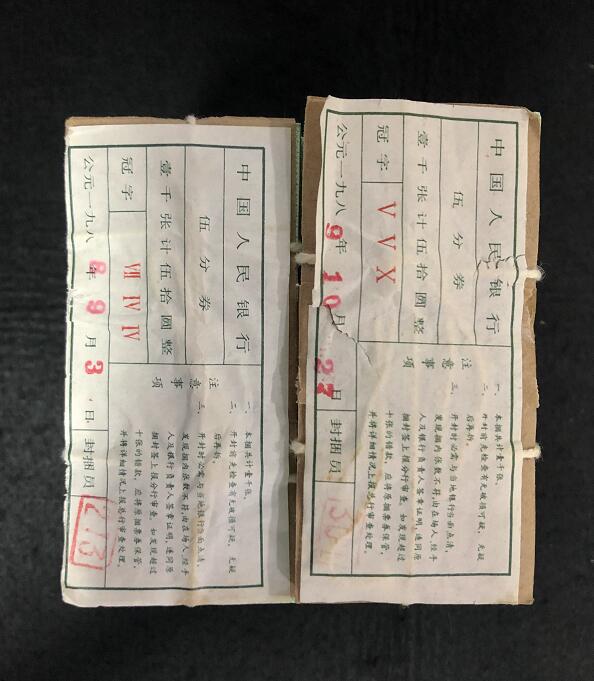 中国人民银行
伍分券
壹千张计伍拾圆整
冠字 Ⅶ Ⅳ Ⅳ
公元一九八8年9月3日
注意事项
一、本捆共计壹千张。
二、开封前先检查有无破损可疑，无疑
后再拆。
三、开封时必需与当地银行当面点清，
发现捆内张数不符，由在场人、经手
人及银行负责人签章证明，连同原
捆封签上报分行审查。如发现超过
十张的错款，应将原捆票券保管，
并将详细情况上报总行审查处理。
封捆员
213
中国人民银行
伍分券
壹千张计伍拾圆整
冠字 V V X
公元一九八9年10月27日
注意事项
一、本捆共计壹千张。
二、开封前先检查有无破损可疑，无疑
后再拆。
三、开封时必需与当地银行当面点清，
发现捆内张数不符，由在场人、经手
人及银行负责人签章证明，连同原
捆封签上报分行审查。如发现超过
十张的错款，应将原捆票券保管，
并将详细情况上报总行审查处理。
封捆员